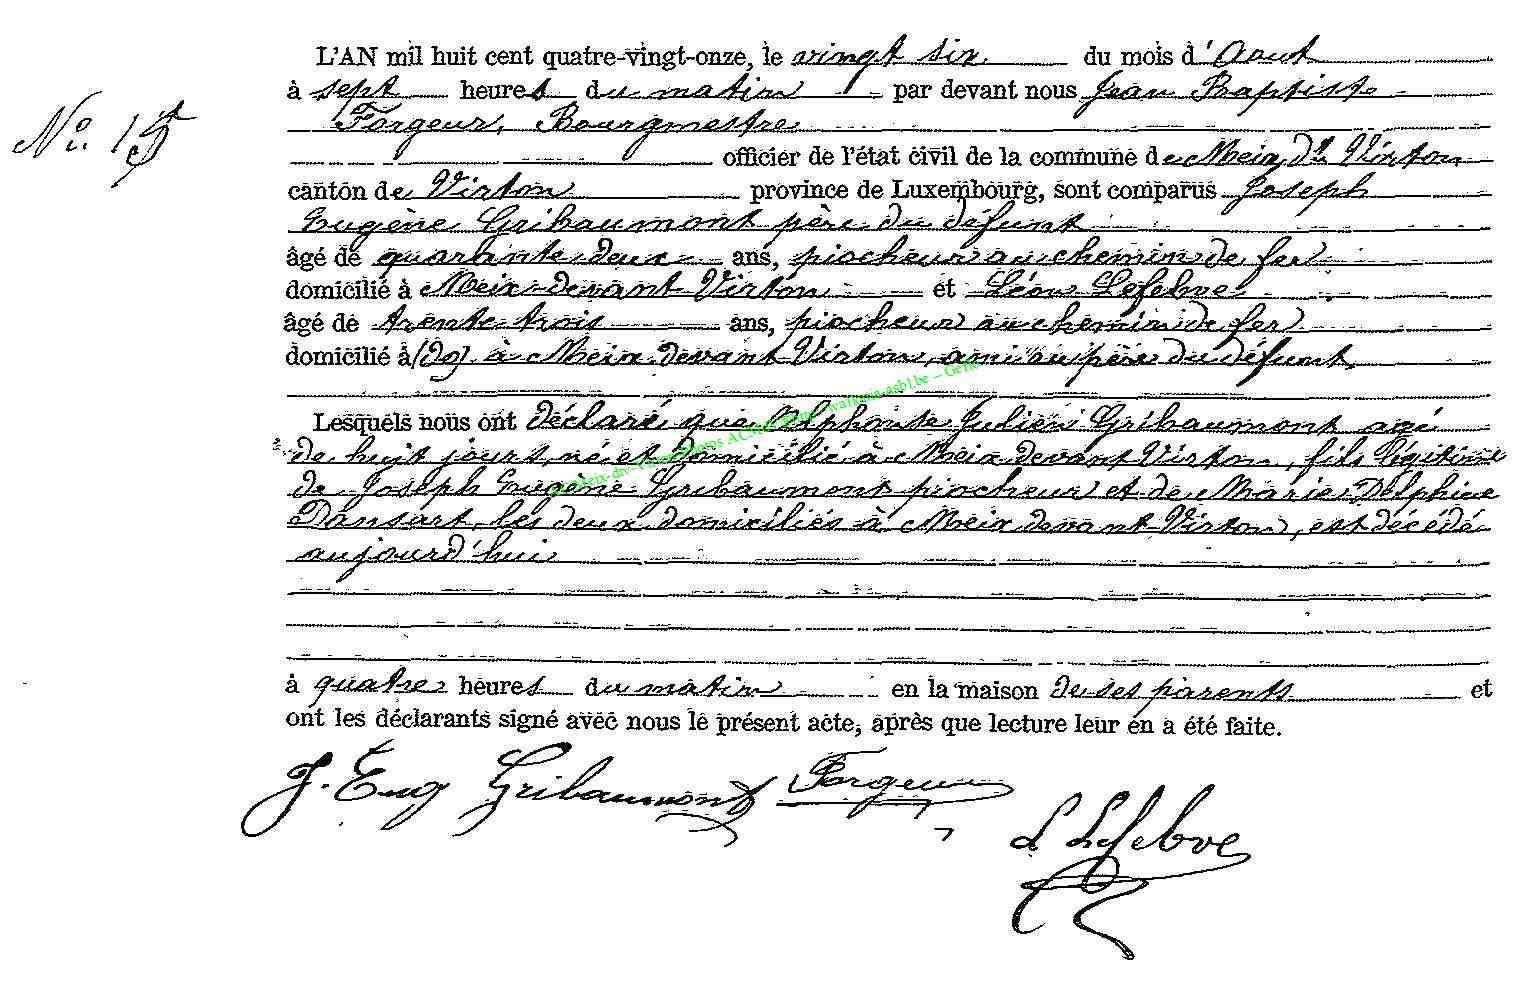 L'AN mil huit cent quatre-vingt-onze, le vingt six du mois d'Aout
à sept heures du matin par devant nous Jean Baptiste
N° 15
Forgeur, Bourgmestre
officier de l'état civil de la commune de Meix dt Virton
canton de Virton province de Luxembourg, sont comparus Joseph
Eugène Gribaumont père du défunt
âgé de quarante deux ans, piocheur au chemin de fer
domicilié à Meix-devant Virton et Léon Lefebve
âgé de trente trois ans, piocheur au chemin de fer
domicilié à (dg) à Meix devant Virton, ami au père du défunt.
Lesquels nous ont déclaré que Alphonse Julien Gribaumont agé
de huit jours, né et domicilié à Meix devant Virton, fils légitime
de Joseph Eugène Gribaumont piocheur et de Marie Delphine
Dansart, les deux domiciliés à Meix devant Virton, est décédé
aujourd'hui
à quatre heures du matin en la maison de ses parents et
ont les déclarants signé avec nous le présent acte, après que lecture leur en a été faite.
J. Eug Gribaumont Forgeur
L Lefebve